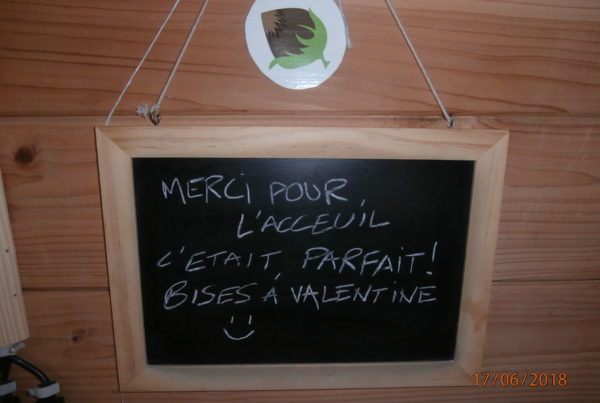 MERCI POUR
L'ACCEUIL
C'ETAIT PARFAIT!
BISES À VALENTINE
:)
17/06/2018